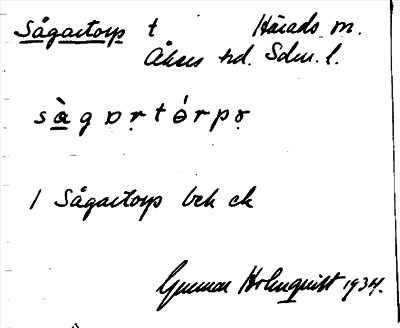 Sågartorp t Härads sn.
Åkers hd. Sdm. l.
sàgɒr̥tórpɒr̥
1 Sågartorp bek ck
Gunnar Holmquist 1934.